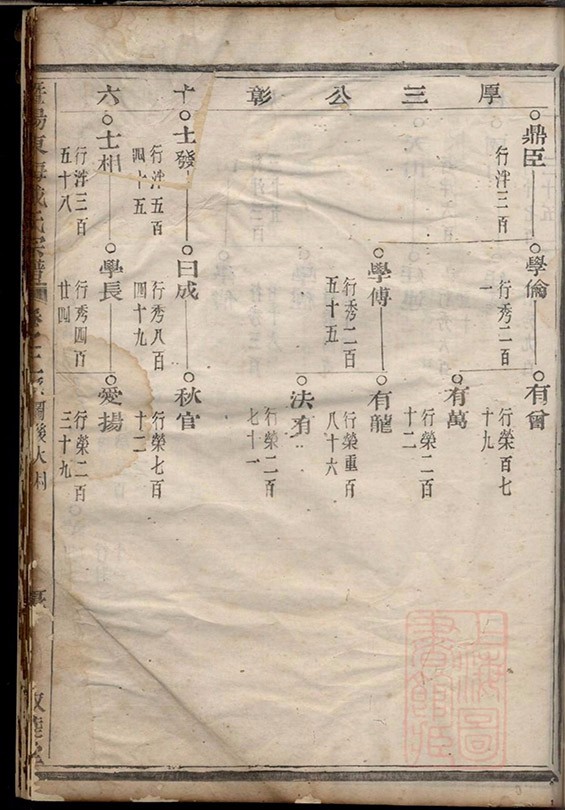 厚三公彰十六
鼎臣
行泮三百
學倫
行秀二百
一
有曾
行榮百七
十九
有萬
行榮二百
十二
學傅
行秀二百
五十五
有龍
行榮重百
八十六
法有
行榮二百
七十一
士發
行泮五百
四十五
曰成
行秀八百
四十九
秋官
行榮七百
十二
士相
行泮三百
五十八
學長
行秀四百
廿四
愛揚
行榮二百
三十九
上海圖
書館藏